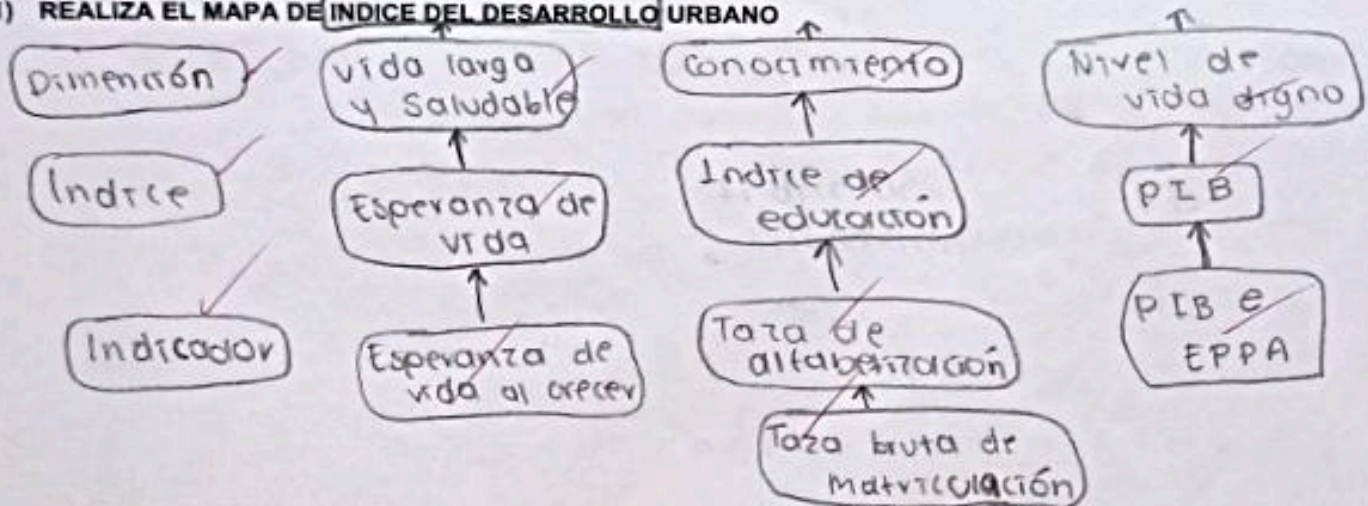 ) REALIZA EL MAPA DE INDICE DEL DESARROLLO URBANO
Dimención
Indice
Indicador
vida larga
y Saludable
Esperanza de
vida
Esperanza de
vida al crecer
Conocimiento
Indice de
educación
Taza de
alfabetización
Taza bruta de
Matriculación
Nivel de
vida digno
PIB
PIB e
EPPA